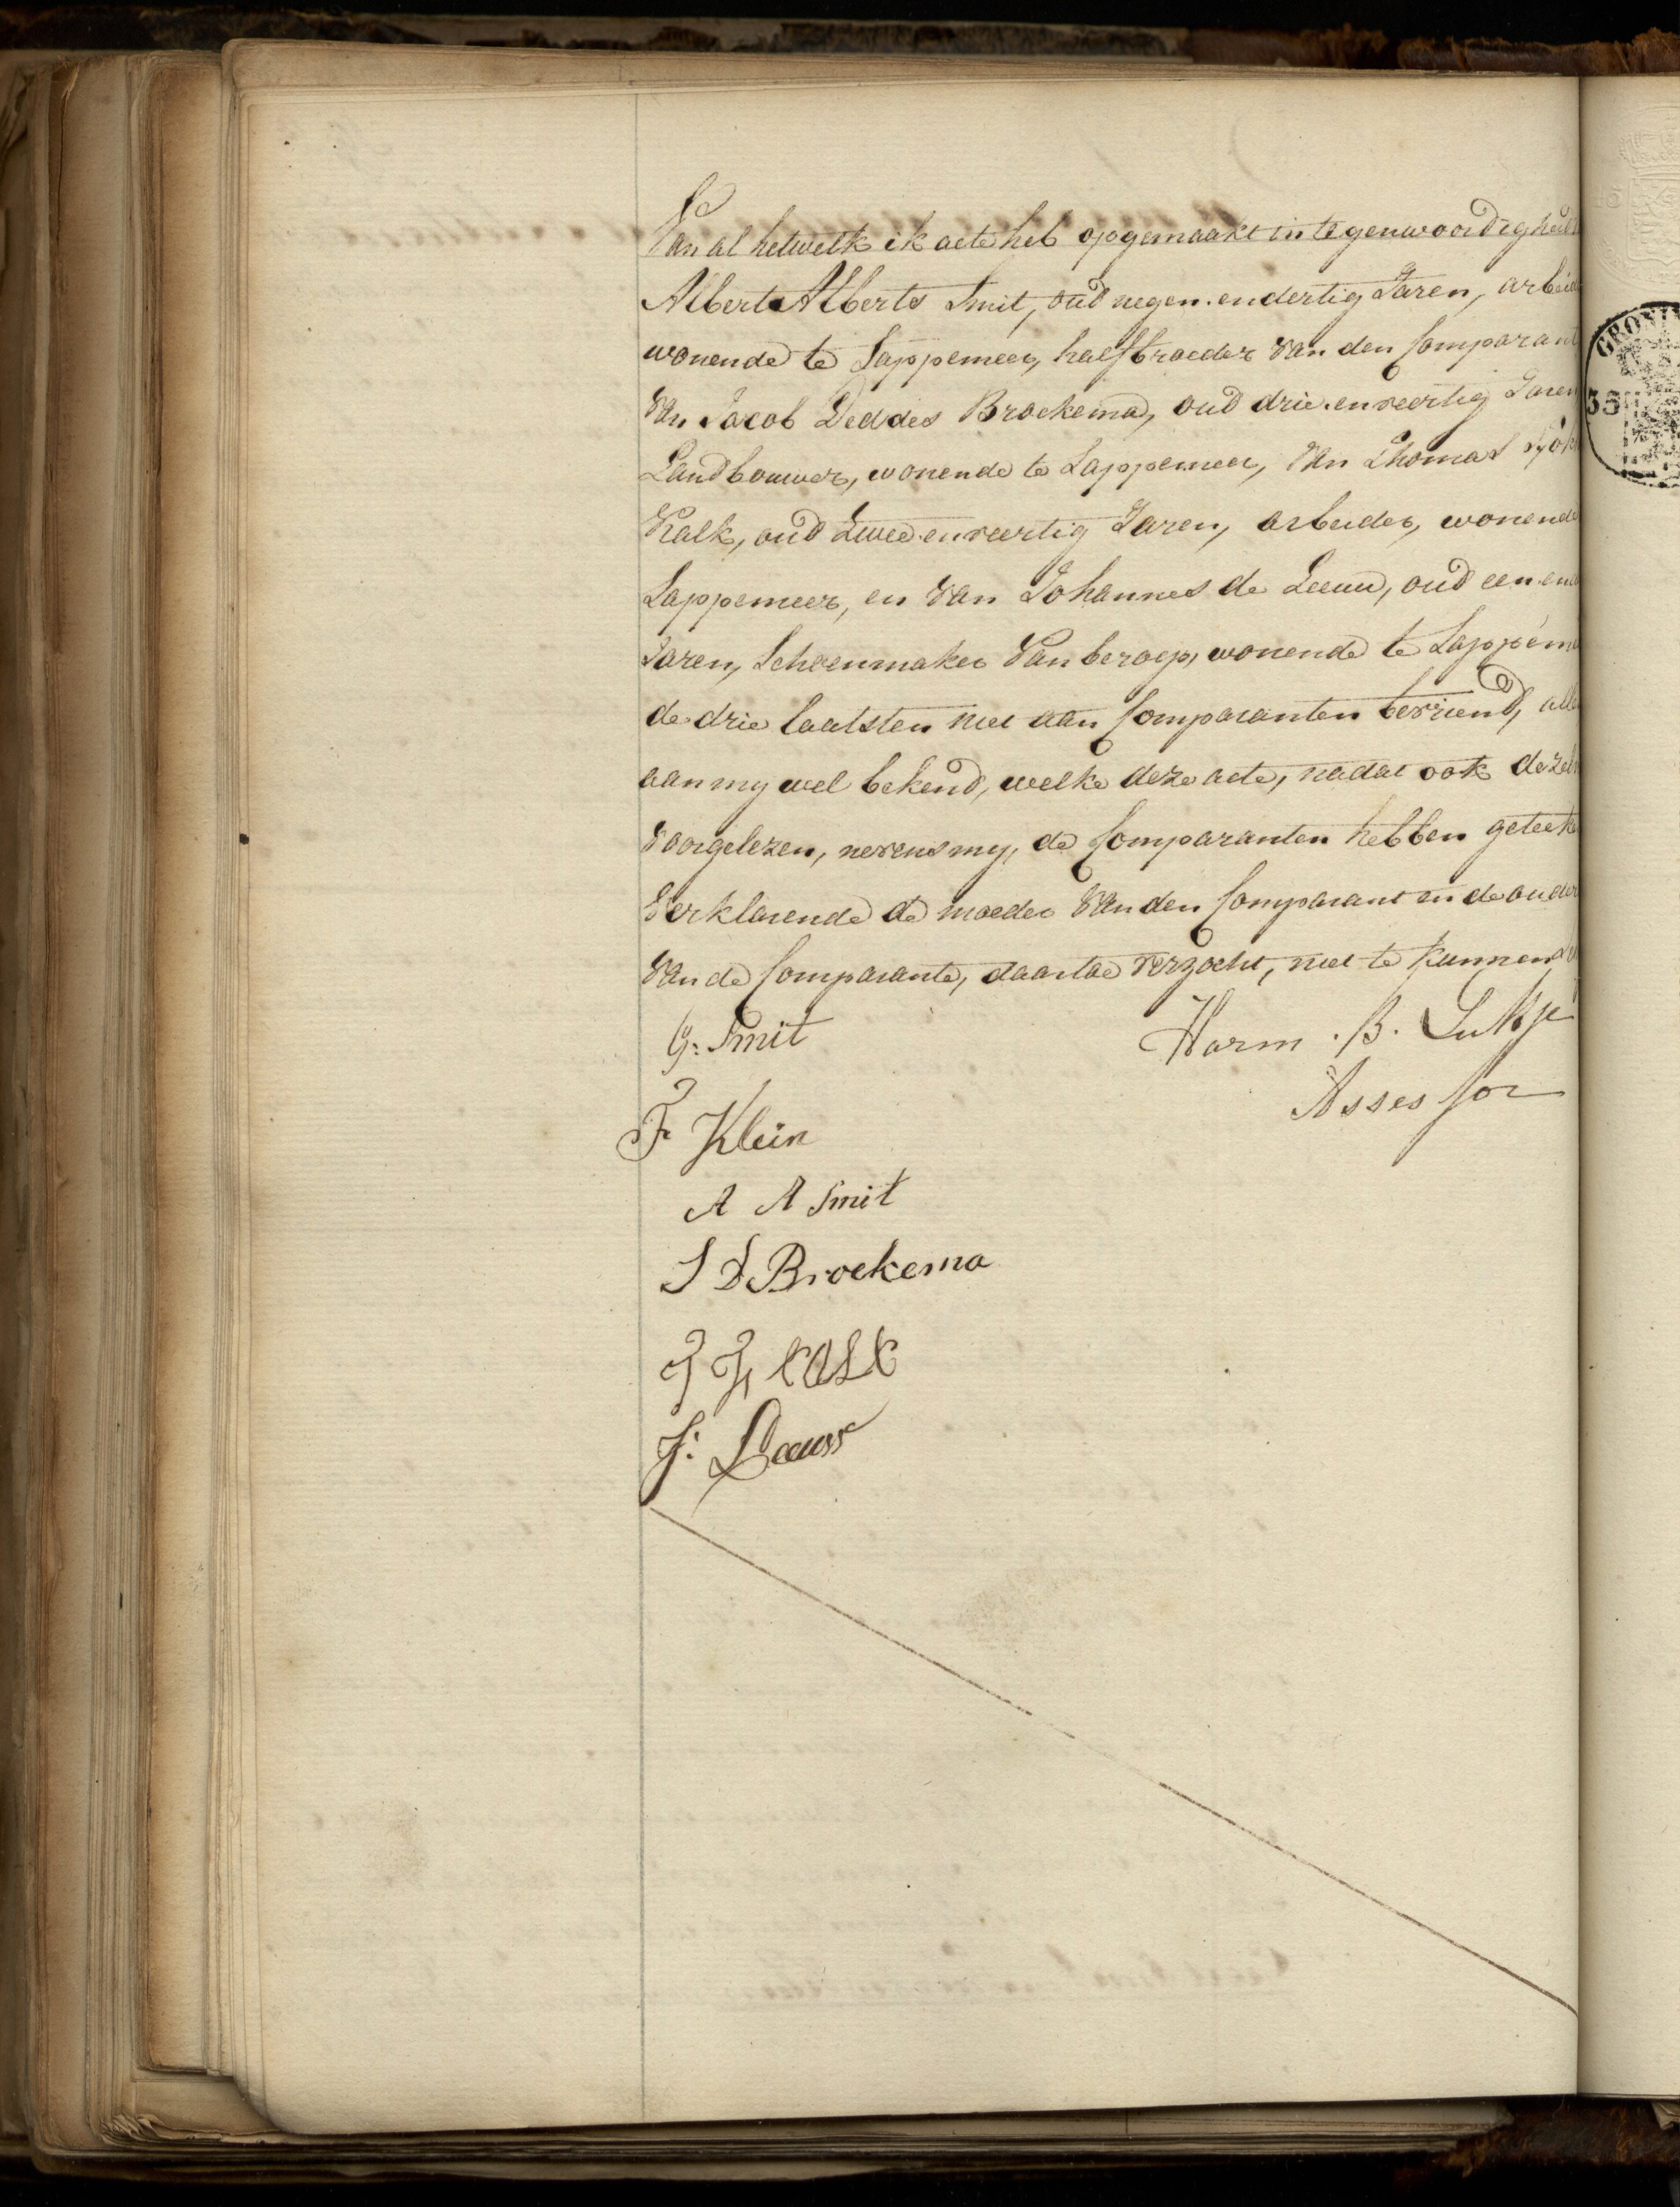 Van al hetwelk ik acte heb opgemaakt in tegenwoordigheid
Albert Alberts Smit, oud negen en dertig Jaren, arbeid
wonende te Sappemeer, halfbroeder van den Comparant
Van Jacob Deddes Broekema, oud drie en veertig Jaren
Landbouwer, wonende te Sappemeer, Van Thomas
Kalk, oud twee en veertig Jaren, arbeider, wonende
Sappemeer, en van Johannes de Leeuw, oud een en
Jaren, Schoenmaker van beroep, wonende te Sappeme
de drie laatsten niet aan Comparanten bevriend, alle
aan my wel bekend, welke deze acte, nadat ook dezel
voorgelezen, nevens my, de Comparanten hebben geteek
Verklarende de moeder van den Comparant en de ouder
Van de Comparante, daartoe verzocht, niet te kunnen
G: Smit
Harm . B. Lutje
Assessor
F Klein
A A Smit
J D Broekema
T T, KALK
J: Leeuw
GRONI
35